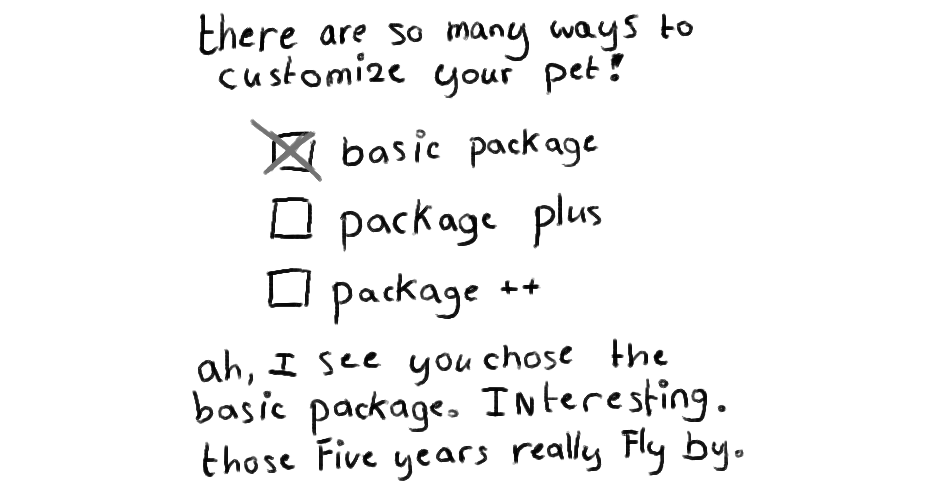 there are so many ways to
customize your pet!
basic package
package plus
package ++
ah, I see you chose the
basic package. INteresting.
those Five years really Fly by.